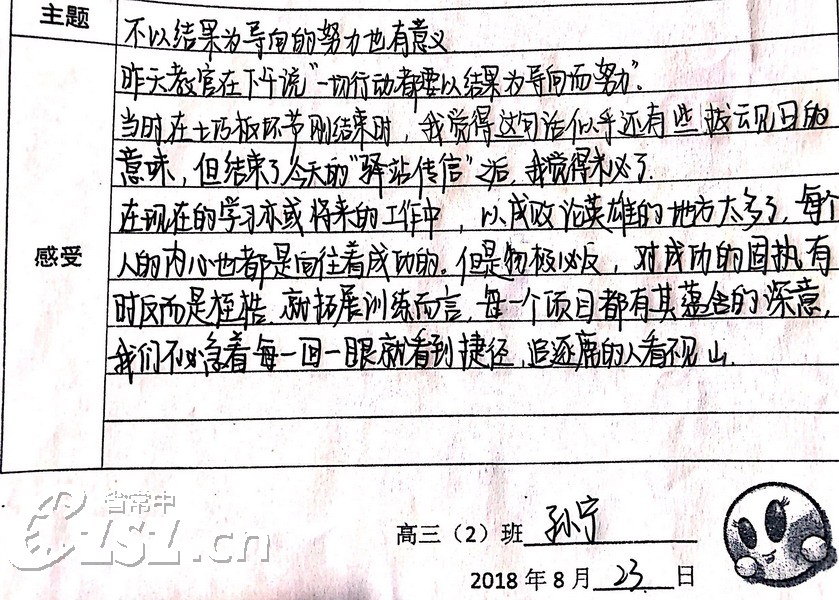 主题
不以结果为导向的努力也有意义
昨天教官在下午说“一切行动都要以结果为导向而努力”。
当时在七巧板环节刚结束时，我觉得这句话似乎还有些拨云见日的
意味，但结束了今天的“驿站传信”之后，我觉得未必了.
在现在的学习亦或将来的工作中，以成败论英雄的地方太多了，每个
感受
人的内心也都是向往着成功的。但是物极必反，对成功的固执有
时反而是桎梏. 就拓展训练而言，每一个项目都有其蕴含的深意，
我们不必急着每一回一眼就看到捷径，追逐鹿的人看不见山.
省常中
CZSZ.cn
高三（2）班 孙宁
2018 年 8 月 23 日